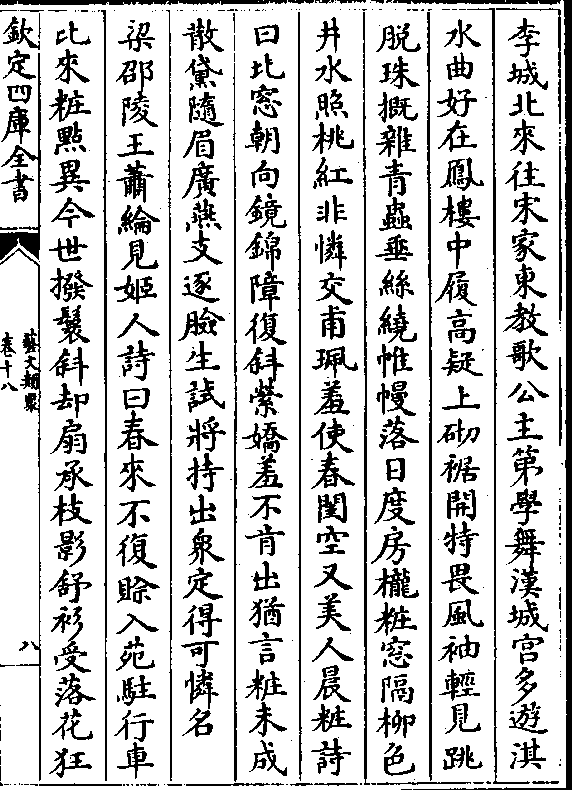 李城北來往宋家東教歌公主第學舞漢城宫多遊淇
水曲好在鳳樓中履高疑上砌裾開特畏風袖輕見跳
脱珠概雜青蟲垂絲繞帷幔落日度房櫳粧窓隔柳色
井水照桃紅非憐交甫珮羞使春閨空又美人晨粧詩
曰北窓朝向鏡錦障復斜縈嬌羞不肯出猶言粧未成
散黛隨眉廣燕支逐臉生試將持出衆定得可憐名
梁邵陵王蕭綸見姬人詩曰春來不復賖入苑駐行車
比來粧點異今世撥鬟斜却扇承枝影舒衫受落花狂
欽定四庫全書
藝文類聚
卷十八
八